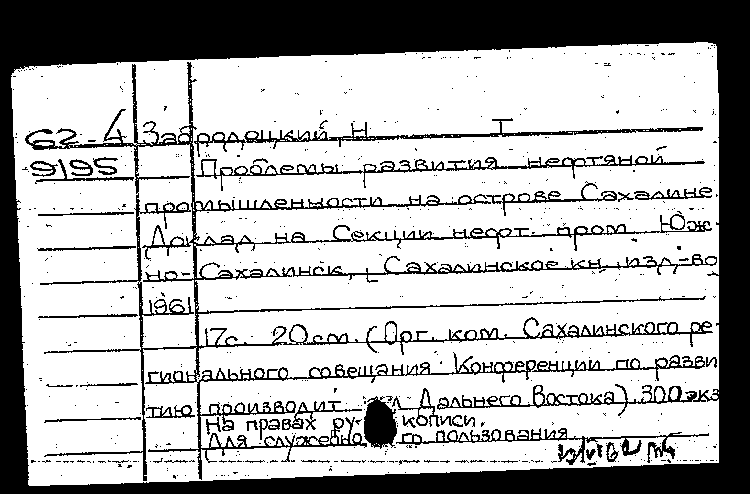 62-4 Забродоцкий, Н Т
9195 Проблемы развития нефтяной
промышленности на острове Сахалине.
Доклад на Секции нефт. пром. Юж-
но-Сахалинск, Сахалинское кн. изд-во
1961
17с. 20см. (Орг. ком. Сахалинского ре-
гионального совещания Конференции по разви
тию производит. Дальнего Востока). 300экз
На правах ру- кописи.
Для служебно го пользования